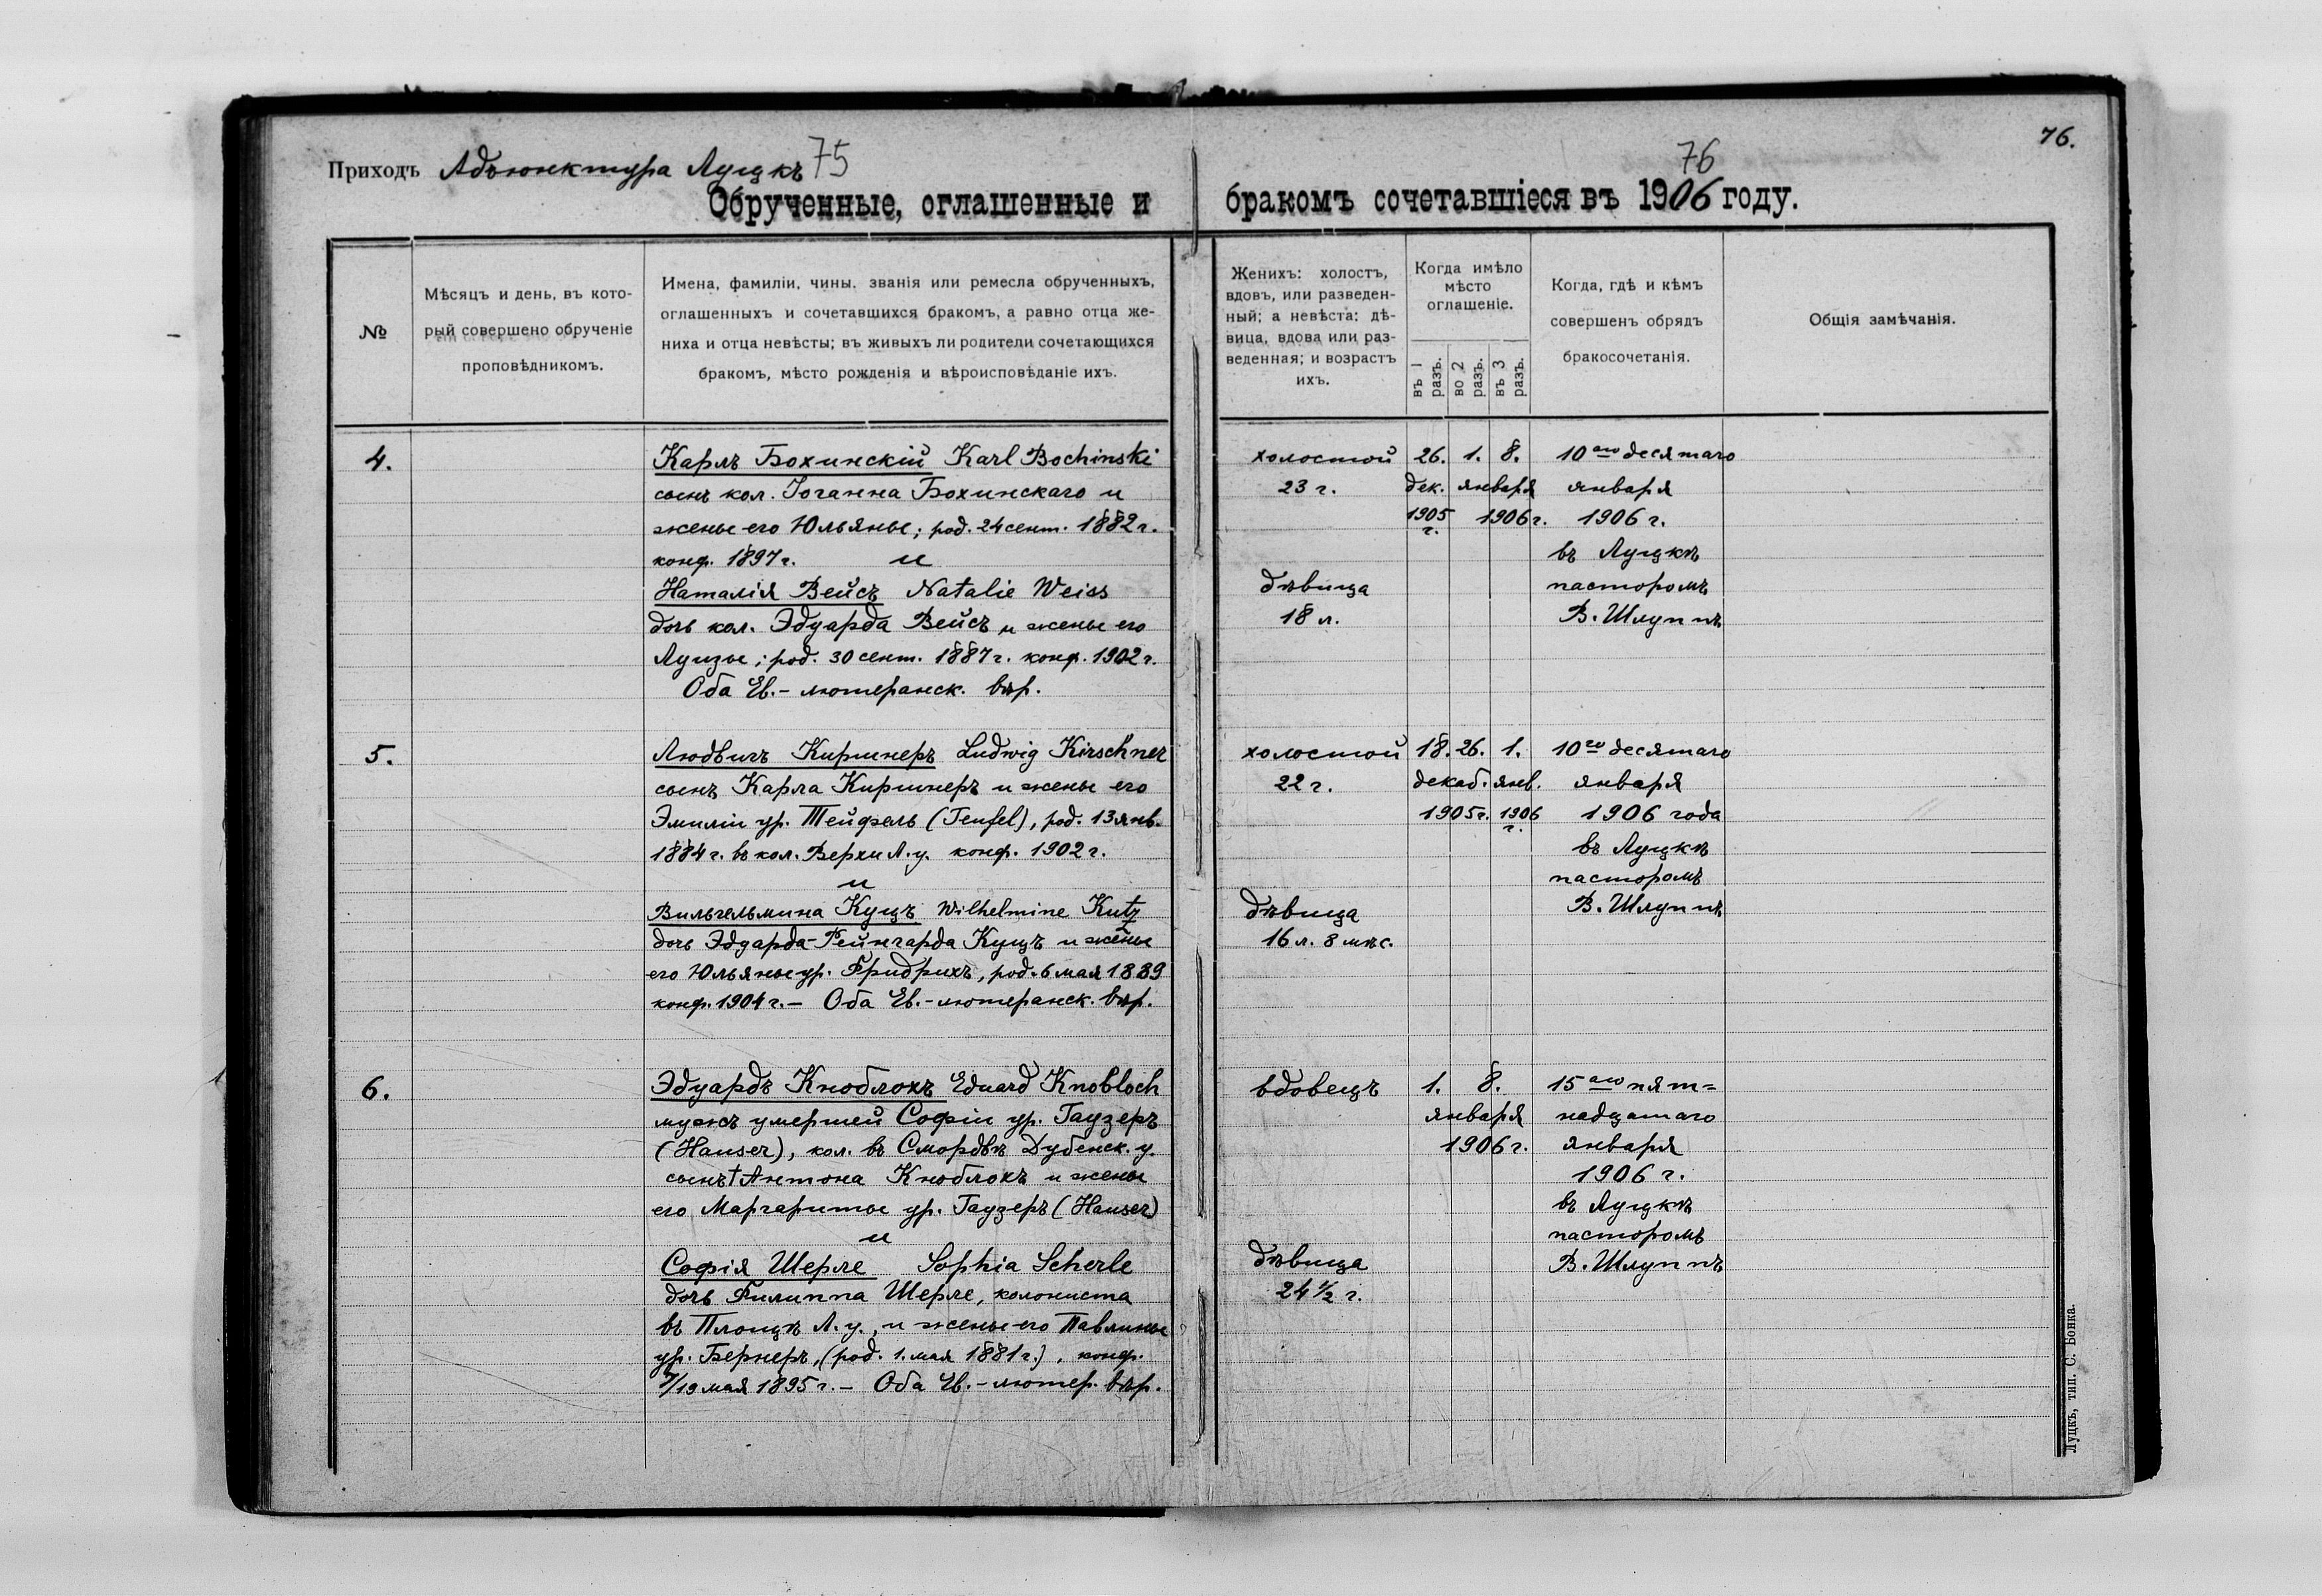 76.
Приходъ Адъюнктура Луцкъ 75
76
Обрученные, оглашенные и бракомъ сочетавшіеся въ 1906 году.
№
Мѣсяцъ и день, въ кото-
рый совершено обрученіе
проповѣдникомъ.
Имена, фамиліи, чины. званія или ремесла обрученныхъ,
оглашенныхъ и сочетавшихся бракомъ, а равно отца же-
ниха и отца невѣсты; въ живыхъ ли родители сочетающихся
бракомъ, мѣсто рожденія и вѣроисповѣданіе ихъ.
Женихъ: холостъ,
вдовъ, или разведен-
ный; а невѣста: дѣ-
вица, вдова или раз-
веденная; и возрастъ
ихъ.
Когда имѣло
мѣсто
оглашеніе.
въ 1 разъ.
во 2 разъ.
въ 3 разъ.
Когда, гдѣ и кѣмъ
совершенъ обрядъ
бракосочетанія.
Общія замѣчанія.
4.
Карлъ Бохинскій Karl Bochinski
сынъ кол. Іоганна Бохинскаго и
жены его Юльяны; род. 24 сент. 1882 г.
конф. 1897 г. и
Наталія Вейсъ Natalie Weiss
дочь кол. Эдуарда Вейсъ и жены его
Луизы; род. 30 сент. 1887 г. конф. 1902 г.
Оба Ев.-лютеранск. вѣр.
холостой
23 г.
дѣвица
18 л.
26. 1. 8.
дек. января
1905 г. 1906 г.
10ого десятаго
января
1906 г.
въ Луцкѣ
пасторомъ
В. Шлуппъ
5.
Людвигъ Киршнеръ Ludwig Kirschner
сынъ Карла Киршнеръ и жены его
Эмиліи ур. Тейфель (Teufel), род. 13 янв.
1884 г. въ кол. Верхи Л. у. конф. 1902 г.
и
Вильгельмина Куцъ Wilhelmine Kutz
дочь Эдуарда-Рейнгарда Куцъ и жены
его Юльяны ур. Фридрихъ, род. 6 мая 1889
конф. 1904 г. — Оба Ев.-лютеранск. вѣр.
холостой
22 г.
дѣвица
16 л. 8 мѣс.
18. 26. 1.
декаб. янв.
1905 г. 1906 г.
10го десятаго
января
1906 года
въ Луцкѣ
пасторомъ
В. Шлуппъ
6.
Эдуардъ Кноблохъ Eduard Knobloch
мужъ умершей Софіи ур. Гаузеръ
(Hauser), кол. въ Смордвѣ Дубенск. у.
сынъ † Антона Кноблохъ и жены
его Маргариты ур. Гаузеръ (Hauser)
и
Софія Шерле Sophia Scherle
дочь Филиппа Шерле, колониста
въ Площѣ Л. у., и жены его Павлины
ур. Бернеръ, (род. 1. мая 1881 г.), конф.
7/19 мая 1895 г. — Оба Ев.-лютер. вѣр.
вдовецъ
дѣвица
24 ½ г.
1. 8.
января
1906 г.
15аго пят=
надцатаго
января
1906 г.
въ Луцкѣ
пасторомъ
В. Шлуппъ
Луцкъ, тип. С. Бонка.